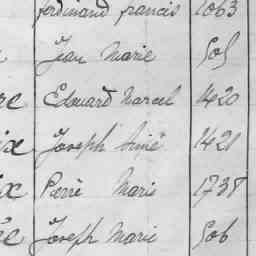 ferdinand francis 1063
Jean Marie 505
Edouard Marcel 1420
ix Joseph Aimé 1421
ix Pierre Marie 1738
Joseph Marie 506